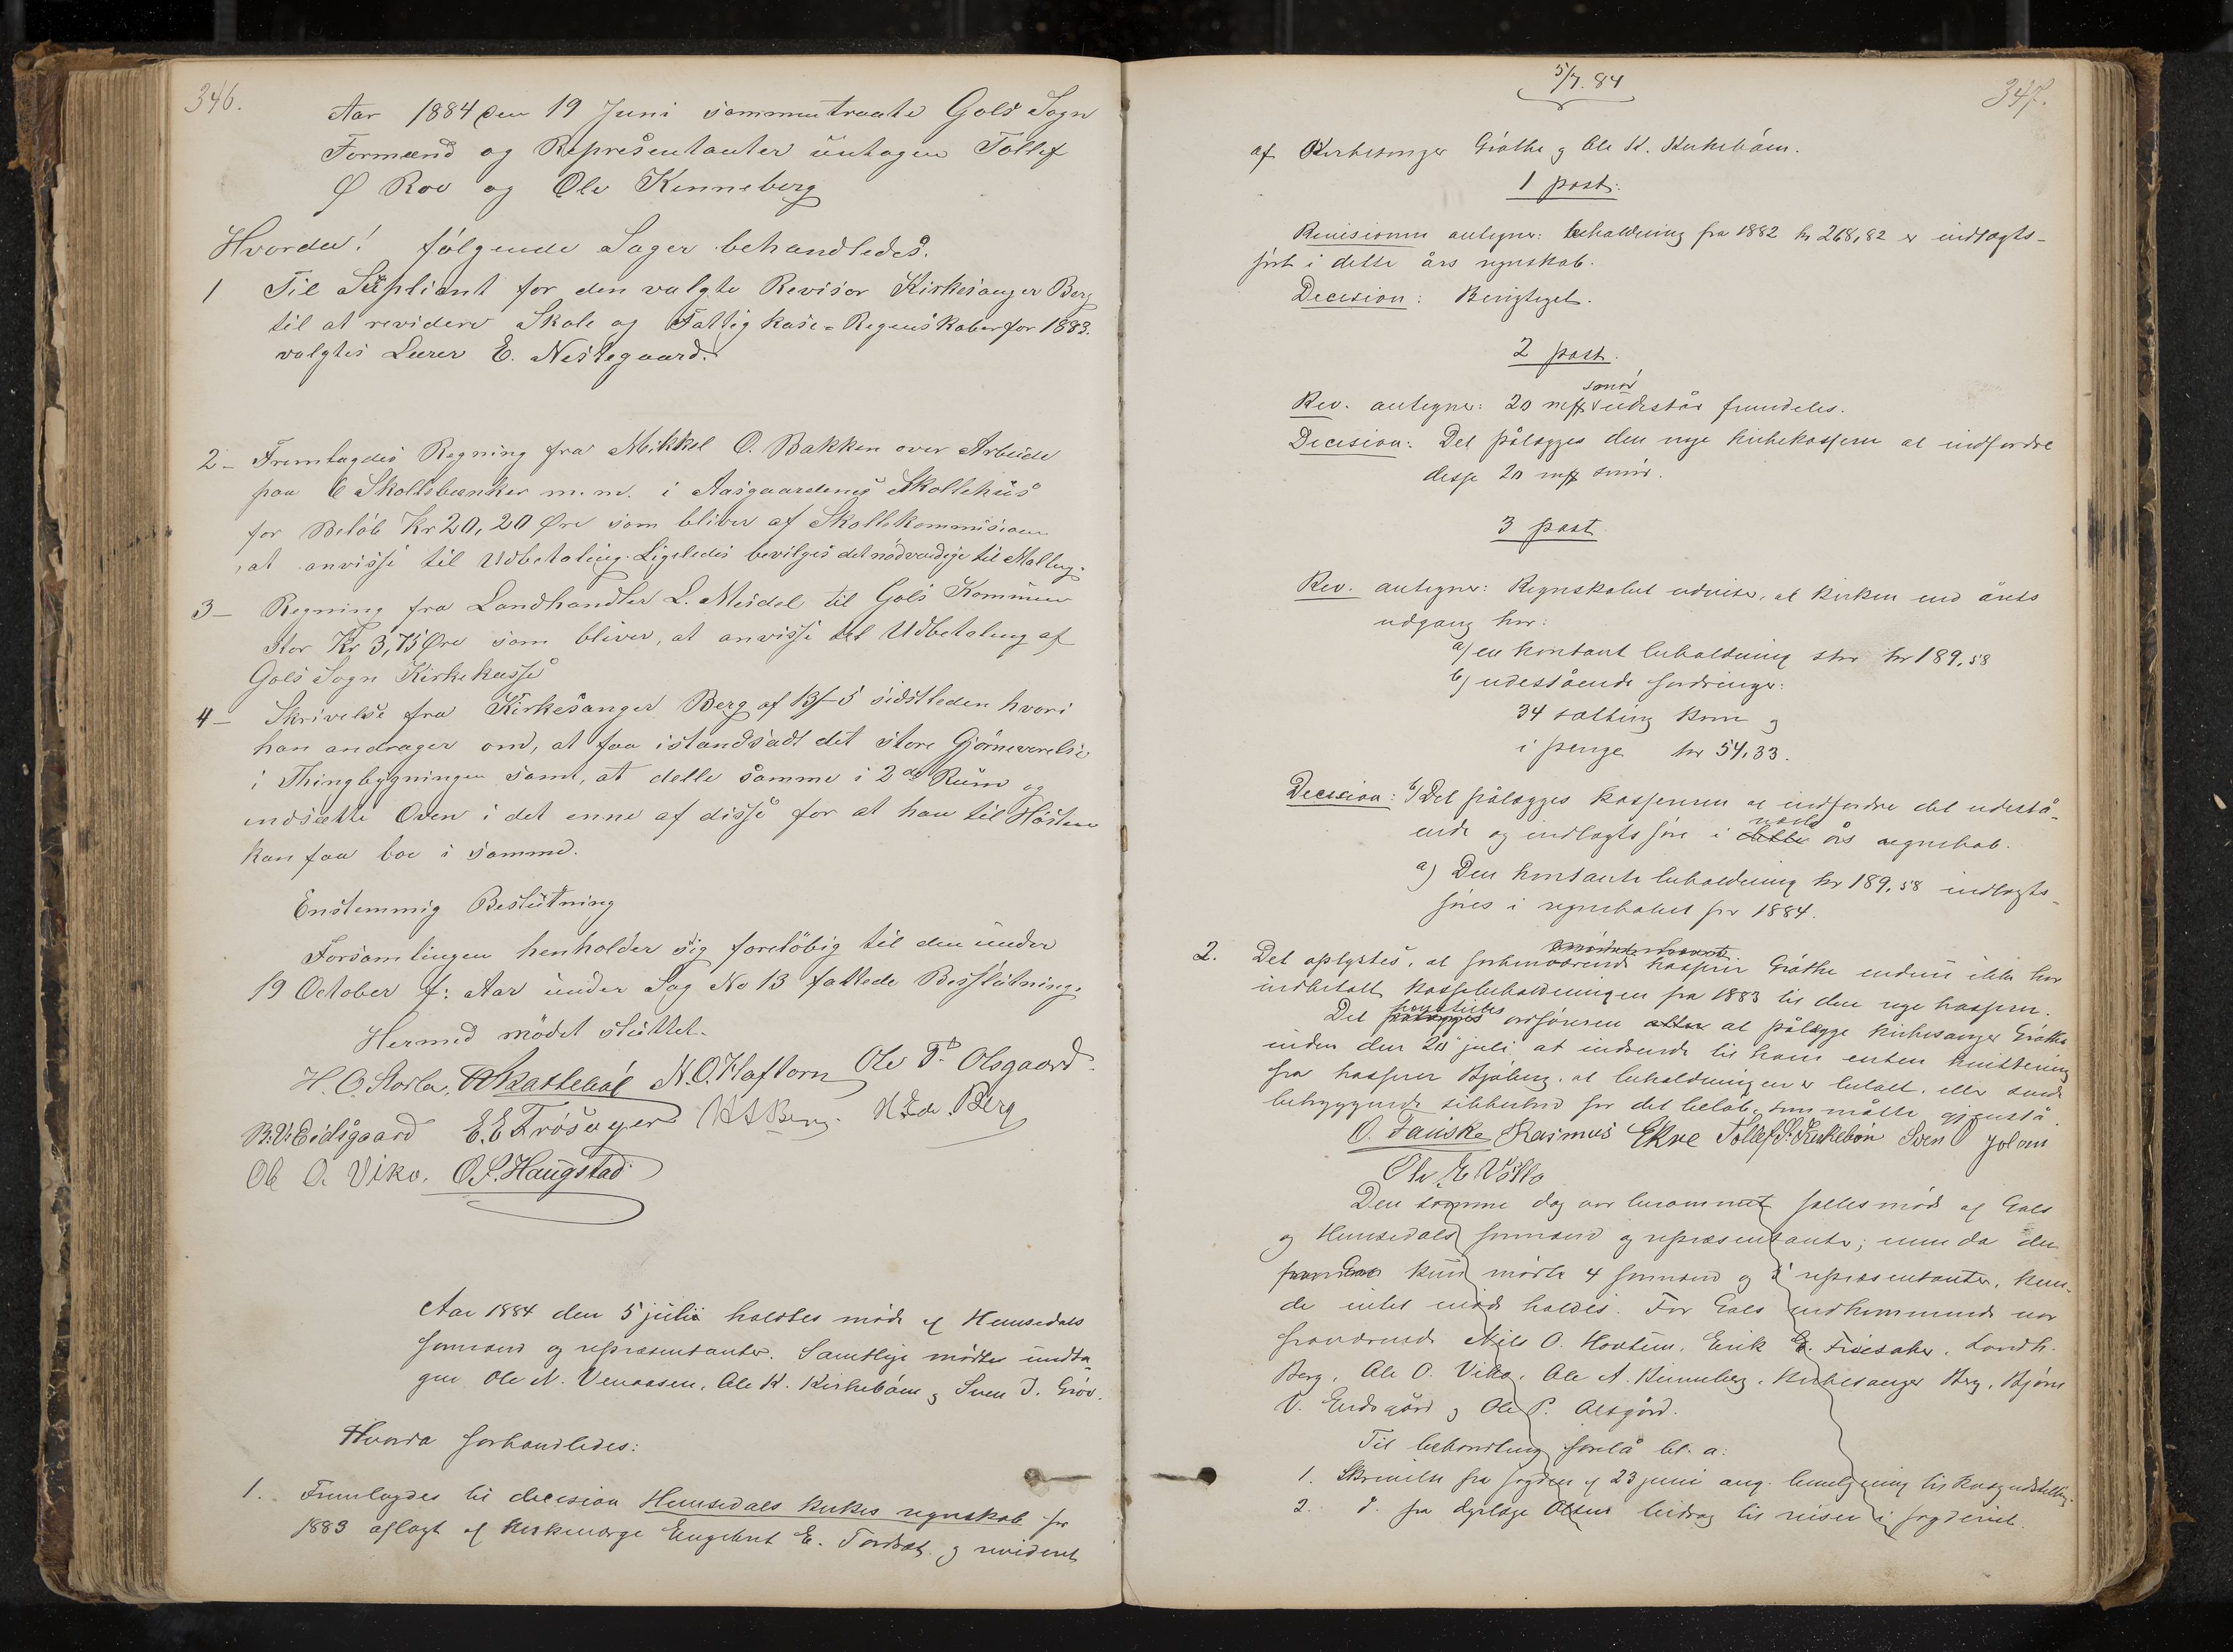 346.
Aar 1884 den 19 Juni sammentraate Gols Sogn
Formænd og Repræsentanter untagen Tollef
Ø Roo og Ole Kinneberg
Hvorder! følgende Sager behandledes.
1 Til Supliant for den valgte Revisor Kirkesanger Berg
til at revidere Skole og Fattigkase-Regenskaber for 1883.
valgtes Lærer E. Nestegaard.
2- Fremlagdes Regning fra Mikkel O. Bakken over Arbeide
paa 6 Skolebænker m.m. i Aasgaardenes Skollehus
for Beløb Kr 20,20 Øre som bliver af Skollekommisionen
at anvisse til Udbetaling. Ligeledes bevilges det nødvendige til Malling.
3- Regning fra Landhandler L. Meidel til Gols Kommune
stor Kr 3,75 Øre som bliver, at anvisse til Udbetaling af
Gols Sogn Kirkekasse
4- Skrivelse fra Kirkesanger Berg af 13/5 sidstleden hvori
han andrager om, at faa istandsadt det store Gjørneverelse
i Thingbygningen samt, at delle samme i 2de Rum og
indsætte Oven i det enne af disse for at han til Høsten
kan faa boe i samme.
Enstemmig Beslutning
Forsamlingen henholder sig foreløbig til den under
19 October f: Aar under Sag No 13 fattede Besslutning.
Hermed mødet sluttet.
H. O. Storla, N.O. Haftorn Ole P. Olsgaard
B. V. Eidsgaard E. E Frøsager Berg
Ole O. Viko. O.P. Haugstad
Aar 1884 den 5 julii holdtes møde af Hemsedals
formænd og repræsentanter. Samtlige mødte undta-
gen Ole N. Venaasen, Ole K. Kirkebøen og Sven I. Grøv.
Hvorda forhandledes:
1. Fremlagdes til decision Hemsedals kirkes regnskab for
1883 aflagt af kirkeværge Engebret E. Tordset og revideret
5/7. 84
347.
af Kirkesanger Grøthe og Ole K. Kirkebøen.
1 post:
Revisionen antegner: beholdning fra 1882 kr 268,82 er indtægts-
ført i dette års regnskab.
Decision: Berigtiget.
2 post.
smør
Rev. antegner: 20 m udestår fremdeles.
Decision: Det pålægges den nye kirkekasserer at indfordre
desse 20 m smør.
3 post
Rev. antegner: Regnskabet udviser, at kirken ved årets
udgang har:
a) en kontant beholdning stor kr 189,58
b) udestående fordringer:
34 sætting korn og
i penge kr 54,33.
Decision: b) Det pålægges kassereren at indfordre det udestå-
næste
ende og indtægtsføre i dette års regnskab.
a) Den kontante beholdning kr 189,58 indtægts-
føres i regnskabet for 1884.
2. Det oplystes, at forhenværende kasserer Grøthe endnu ikke har
indbetalt kassebeholdningen fra 1883 til den nye kasserer.
henstilles
Det pålægges ordføreren at pålægge kirkesanger Grøthe
inden den 20 juli at indsende til ham enten kvittering
fra kasserer Bjøberg, at beholdningen er betalt, eller sende
betryggende sikkerhed for det beløb, som måtte gjenstå.
O. Fauske Rasmus Ekre Tollef S. Kirkebøn Sven Jolom
Ole E Vøllo
Den samme dag var berammet fællesmøde af Gols
og Hemsedals formænd og repræsentanter; men da der
kun mødte 4 formænd og repræsentanter, kun-
de intet møde holdes. For Gols vedkommende var
fraværende Nils O. Haftorn, Erik E. Frøsaker, Landh.
Berg, Ole O. Viko, Ole A. Kinneberg, Kirkesanger Berg, Bjørn
V. Eidsgård og Ole P. Olsgård.
Til behandling forelå bl. a:
1. Skrivelse fra fogden af 23 juni ang.
2. d. fra dyrlæge Olsen bidrag til reiser i fogderiet.